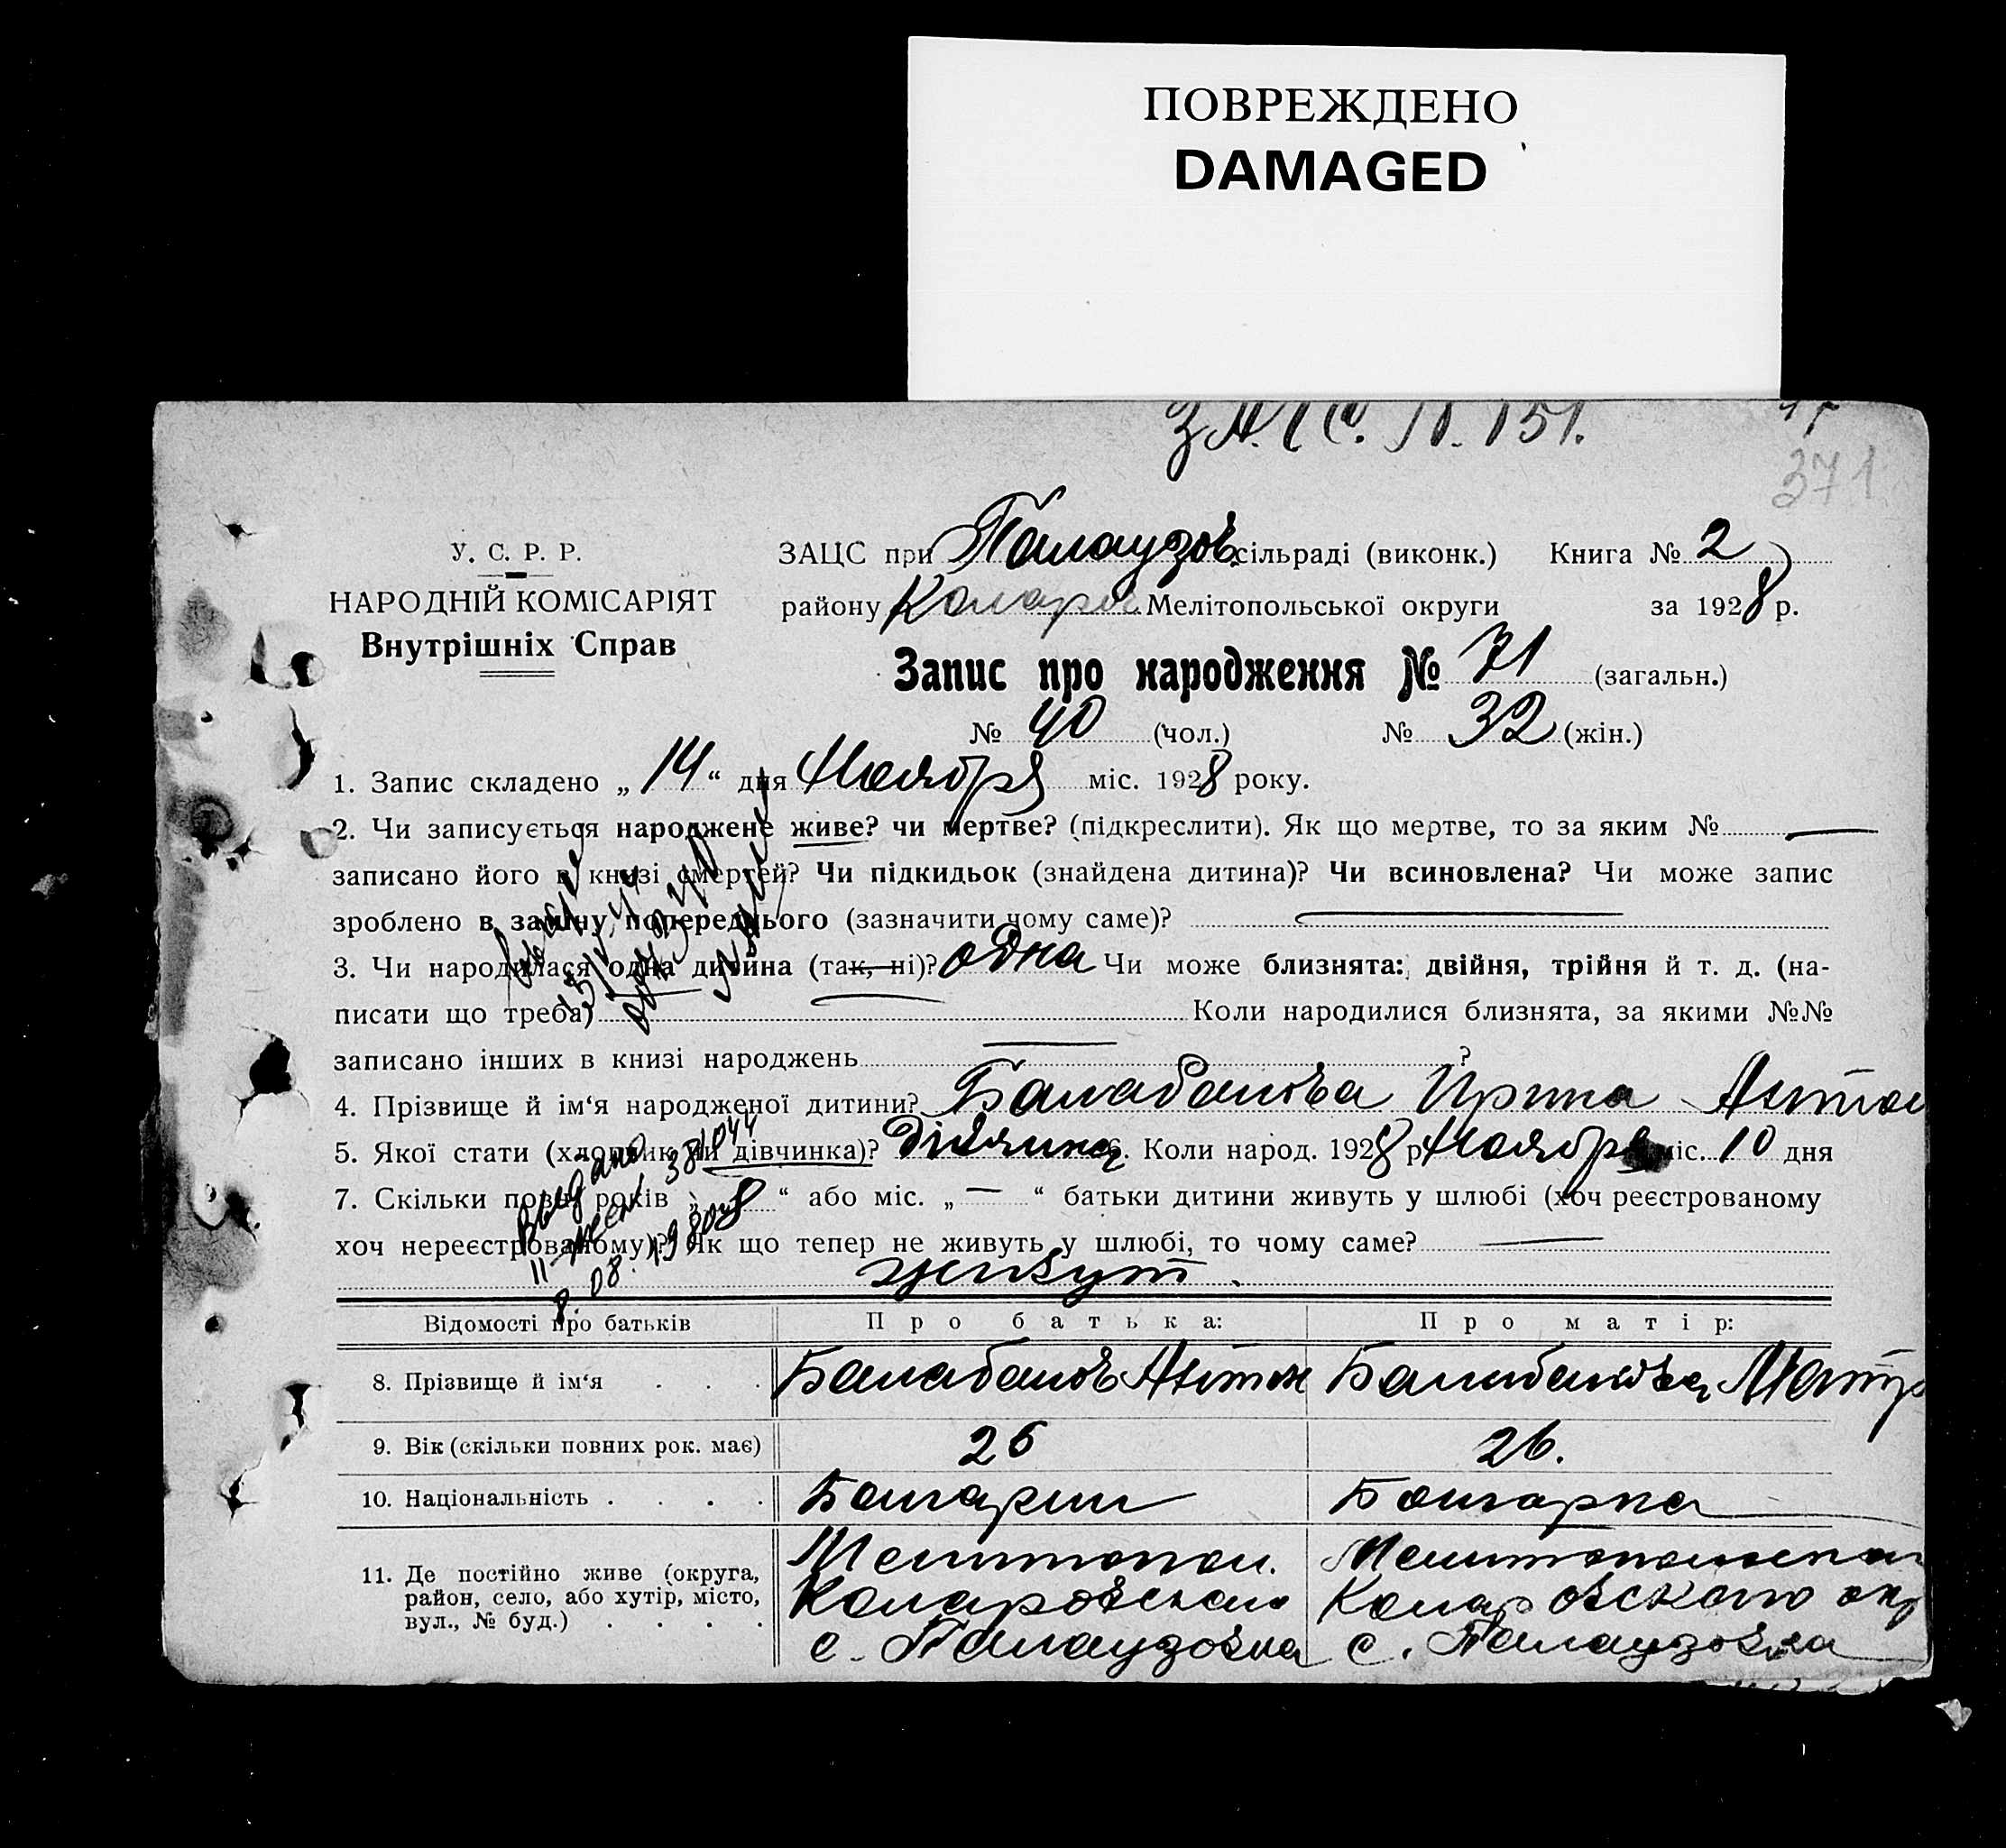 ПОВРЕЖДЕНО
DAMAGED
371
У. С. Р. Р.
НАРОДНІЙ КОМІСАРІЯТ
Внутрішніх Справ
ЗАЦС при Палаузов. сільраді (виконк.) Книга № 2
району Коларов. Мелітопольської округи за 1928 р.
Запис про народження № 71 (загальн.)
№ 40 (чол.) № 32 (жін.)
1. Запис складено „ 14 “ дня Ноября міс. 1928 року.
2. Чи записується народжене живе? чи мертве? (підкреслити). Як що мертве, то за яким № —
записано його в книзі смертей? Чи підкидьок (знайдена дитина)? Чи всиновлена? Чи може запис
зроблено в заміну попереднього (зазначити чому саме)? —
3. Чи народилася одна дитина (так, ні)? одна Чи може близнята: двійня, трійня й т. д. (на-
писати що треба) — Коли народилися близнята, за якими №№
записано інших в книзі народжень — ?
4. Прізвище й ім‘я народженої дитини? Балабанова Ирина Антон
5. Якої стати (хлопчик чи дівчинка)? дівчина 6. Коли народ. 1928 р Ноября міс. 10 дня
7. Скільки повн. років „ 8 “ або міс. „ — “ батьки дитини живуть у шлюбі (хоч реєстрованому
хоч нереєстрованому)? Як що тепер не живуть у шлюбі, то чому саме? —
живут.
Видано
8.08.
Відомості про батьків Про батька: Про матір:
8. Прізвище й ім‘я . . . Балабанов Антон Балабанова Матр
9. Вік (скільки повних рок. має) 26 26.
10. Національність . . . . Болгарин Болгарка
11. Де постійно живе (округа, район, село, або хутір, місто, вул., № буд.) . . . .
Мелитопол. Мелитопольской
Коларовского Коларовского окр
с. Палаузовка с. Палаузовка